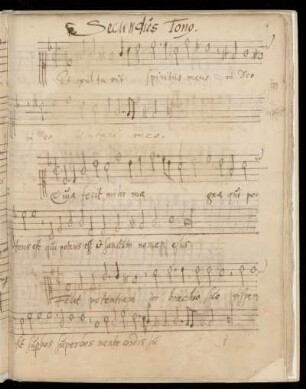 Secundus Tono.
Et exultavit spiritus meus in Deo
in Deo salutari meo.
Quia fecit mihi ma gna qui po
tens est qui potens est & sanctum nomen ejus
Fecit potentiam in brachio suo disper
sit superbos mente cordis sui